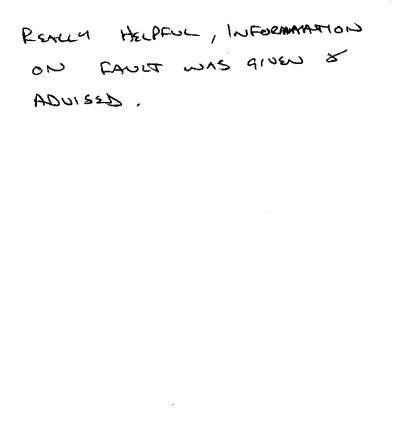 REALLY HELPFUL, INFORMATION
ON FAULT WAS GIVEN &
ADVISED.